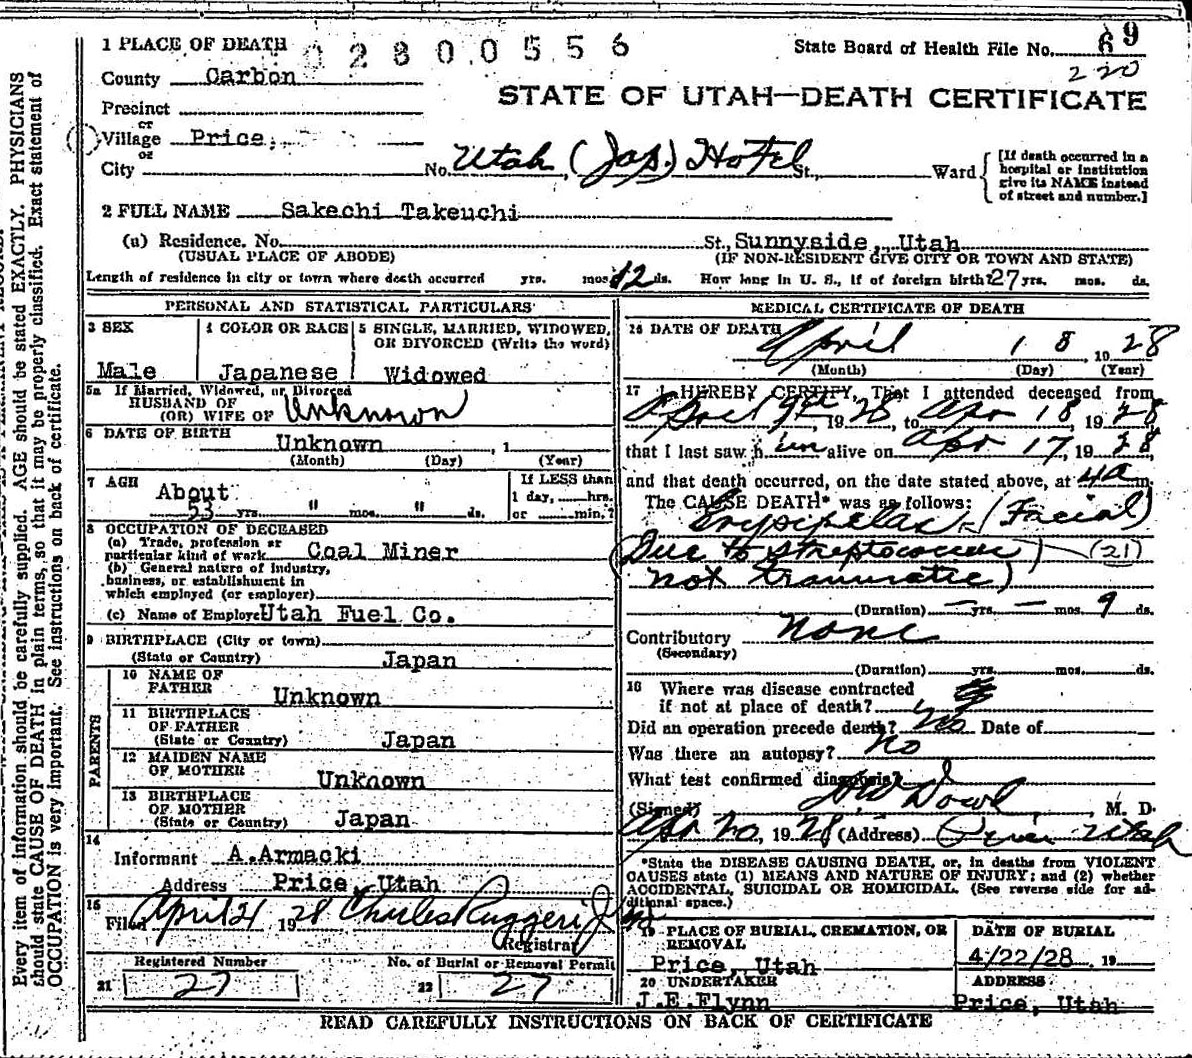 1 PLACE OF DEATH
0 2 8 0 0 5 5 6
State Board of Health File No. 69
220
County Carbon
STATE OF UTAH—DEATH CERTIFICATE
Precinct
or
Village Price,
or
City No. Utah (Jap.) Hotel St., Ward
[If death occurred in a
hospital or institution
give its NAME instead
of street and number.]
2 FULL NAME Sakechi Takeuchi
(a) Residence. No. St., Sunnyside, Utah
(USUAL PLACE OF ABODE) (IF NON-RESIDENT GIVE CITY OR TOWN AND STATE)
Length of residence in city or town where death occurred yrs. mos. 12 ds. How long in U. S., if of foreign birth? 27 yrs. mos. ds.
PERSONAL AND STATISTICAL PARTICULARS
3 SEX
Male
4 COLOR OR RACE
Japanese
5 SINGLE, MARRIED, WIDOWED,
OR DIVORCED (Write the word)
Widowed
5a If Married, Widowed, or Divorced
HUSBAND OF
(OR) WIFE OF Unknown
6 DATE OF BIRTH
Unknown , 1
(Month) (Day) (Year)
7 AGE
About
53 yrs. " mos. " ds.
If LESS than
1 day, hrs.
or min.?
8 OCCUPATION OF DECEASED
(a) Trade, profession or
particular kind of work Coal Miner
(b) General nature of industry,
business, or establishment in
which employed (or employer)
(c) Name of Employer Utah Fuel Co.
9 BIRTHPLACE (City or town)
(State or Country) Japan
PARENTS
10 NAME OF
FATHER Unknown
11 BIRTHPLACE
OF FATHER
(State or Country) Japan
12 MAIDEN NAME
OF MOTHER Unknown
13 BIRTHPLACE
OF MOTHER
(State or Country) Japan
14
Informant A.Armacki
Address Price, Utah
15
Filed April 21 1928 Charles Ruggeri Jr
Registrar
Registered Number No. of Burial or Removal Permit
21 27 22 27
MEDICAL CERTIFICATE OF DEATH
16 DATE OF DEATH
April 18, 1928
(Month) (Day) (Year)
17 I HEREBY CERTIFY, That I attended deceased from
April 9th, 1928, to Apr 18, 1928
that I last saw him alive on Apr 17, 1928
and that death occurred, on the date stated above, at 4a m.
The CAUSE DEATH* was as follows:
Erysipelas - (Facial)
(Due to streptococcus) (21)
not traumatic)
(Duration) — yrs. — mos. 9 ds.
Contributory None
(Secondary)
(Duration) yrs. mos. ds.
18 Where was disease contracted
if not at place of death?
Did an operation precede death? No Date of
Was there an autopsy? No
What test confirmed diagnosis?
(Signed) , M. D.
Apr 20, 1928 (Address) Price Utah
*State the DISEASE CAUSING DEATH, or, in deaths from VIOLENT
CAUSES state (1) MEANS AND NATURE OF INJURY; and (2) whether
ACCIDENTAL, SUICIDAL OR HOMICIDAL. (See reverse side for ad-
ditional space.)
19 PLACE OF BURIAL, CREMATION, OR
REMOVAL
Price, Utah
DATE OF BURIAL
4/22/28 19
20 UNDERTAKER
J.E.Flynn
ADDRESS
Price, Utah
READ CAREFULLY INSTRUCTIONS ON BACK OF CERTIFICATE
Every item of information should be carefully supplied. AGE should be stated EXACTLY. PHYSICIANS
should state CAUSE OF DEATH in plain terms, so that it may be properly classified. Exact statement of
OCCUPATION is very important. See instructions on back of certificate.